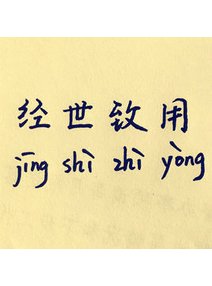 经世致用
jīng shì zhì yòng